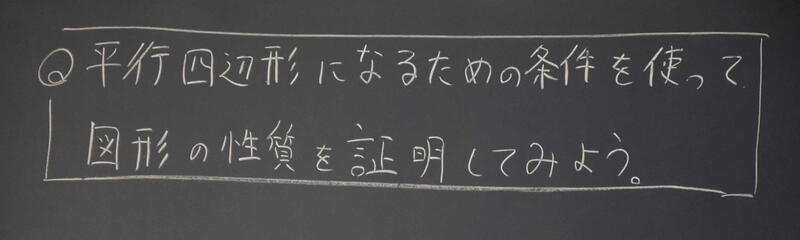 Q 平行四辺形になるための条件を使って
図形の性質を証明してみよう。